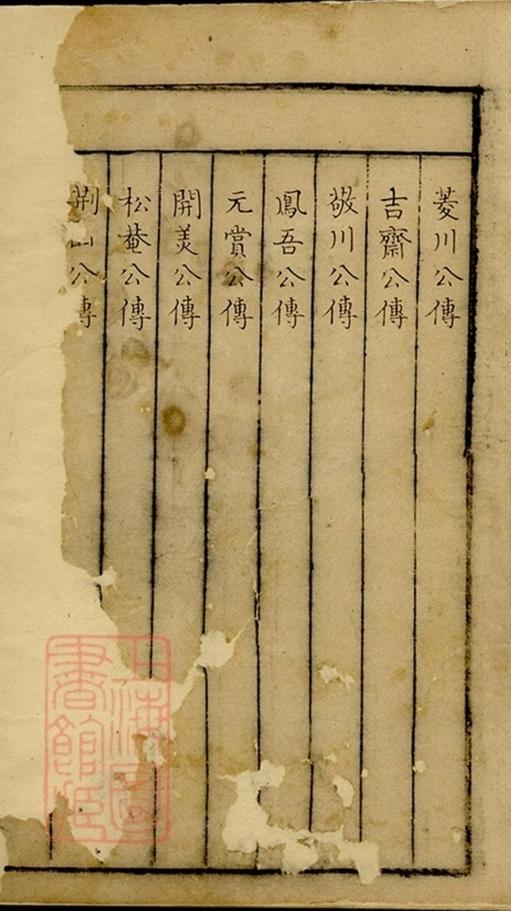 菱川公傳
吉齋公傳
敬川公傳
鳳吾公傳
元賞公傳
開美公傳
松菴公傳
荆山公傳
上海圖書館藏